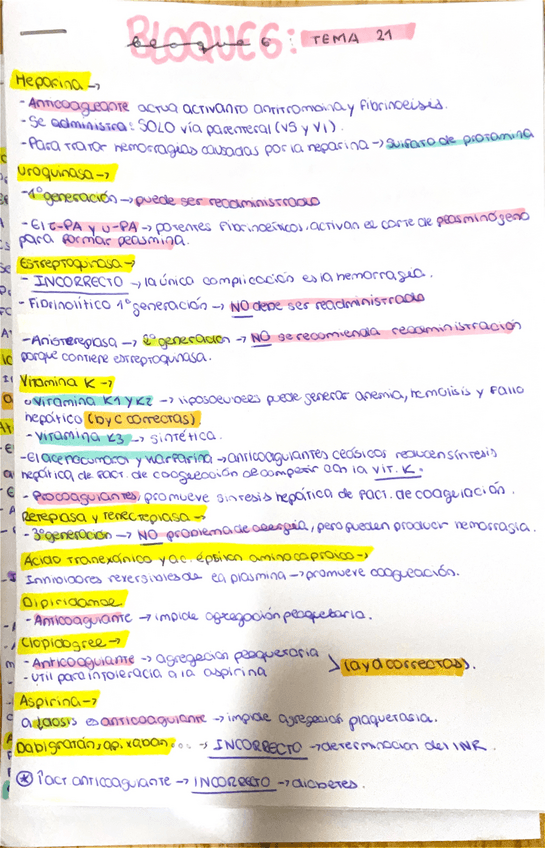 BLOQUE 6: TEMA 21
Heparina →
- Anticoagulante actua activando antitrombina y fibrinolisis.
- Se administra: SOLO vía parenteral (VS y VI).
- Para tratar hemorragias causadas por la heparina → Sulfato de protamina
Uroquinasa →
- 1º generación → puede ser readministrado
- El t-PA y u-PA → potentes fibrinolíticos. activan el corte de plasminógeno
para formar plasmina.
Estreptoquinasa →
- INCORRECTO → la única complicación es la hemorragia.
- Fibrinolítico 1º generación → NO debe ser readministrado
- Anistreplasa → 2º generación → NO se recomienda readministración
porque contiene estreptoquinasa.
Vitamina K →
Vitamina K1 y K2 → liposolubles puede generar anemia, hemolisis y fallo
hepático (b y c correctas).
- Vitamina K3 → sintética.
- El acenocumarol y warfarina → anticoagulantes clásicos reducen síntesis
hepática de fact. de coagulación al competir con la VIT. K.
- Procoagulantes, promueve sintesis hepática de fact. de coagulación.
Reteplasa y tenecteplasa →
- 3º generación → NO problema de alergia, pero pueden producir hemorragia.
Ácido tranexánico y ac. épsilon aminocaproico →
Inhibidores reversibles de la plasmina → promueve coagulación.
Dipiridamol
- Anticoagulante → impide agregación plaquetaria.
Clopidogrel →
- Anticoagulante → agregación plaquetaria
- util para intoleracia a la aspirina
(a y d correctas).
Aspirina →
a ↓dosis es anticoagulante → impide agregación plaquetaria.
Dabigratán, apixaban... → INCORRECTO → determinacion del INR.
Fact anticoagulante → INCORRECTO → diabetes.